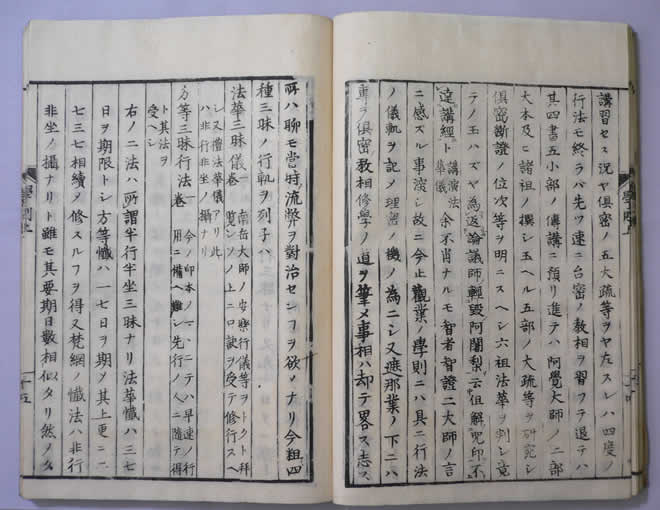 講習セス況ヤ倶密ノ五大疏等ヲヤ左スレハ四度ノ
行法モ終ラバ先ツ速ニ台密ノ教相ヲ習フテ退テハ
其四書五小部ノ傳講ニ預リ進テハ阿覺大師ノ二部
大本及ヒ諸祖ノ撰シ玉ヘル五部ノ大疏等ヲ研究シ
倶密斷證ノ位次等ヲ明ニスヘシ六祖法華ヲ判シ竟
テノ玉ハズヤ為返論議師輕毀阿闍梨云但解咒印不
達講經ト
講演法
華儀
余不肖ナルモ智者智證二大師ノ言
ニ感ズル事深シ故ニ今止觀業ノ學則ニハ具ニ行法
ノ儀軌ヲ記メ理密ノ機ノ為ニシ又遮那業ノ下ニハ
專ラ倶密教相修學ノ道ヲ筆メ事相ハ却テ畧ス志ス
所ハ聊モ當時流弊ヲ對治センヿヲ欲メナリ今粗四
種三昧ノ行軌ヲ列子ハ
法華三昧儀一卷
南岳大師ノ安樂行儀等ヲトクト拜
覽シソノ上ニ口訣ヲ受テ修行スヘ
シ又禮法華儀アリ此
ハ非行非坐ノ攝ナリ
方等三昧行法一卷
今ノ印本ノ一ニテハ早速ノ行
用ニ備ヘ難シ先行ノ人ニ隨テ得
ト其法ヲ
受ヘシ
右ノ二法ハ所謂半行半坐三昧ナリ法華懺ハ三七
日ヲ期限トシ方等懺ハ一七日ヲ期ノ其上更ニ二
七三七相續ノ修スルフヲ得又梵網ノ懺法ハ非行
非坐ノ攝ナリト雖モ其要期日數相似タリ然ノタ